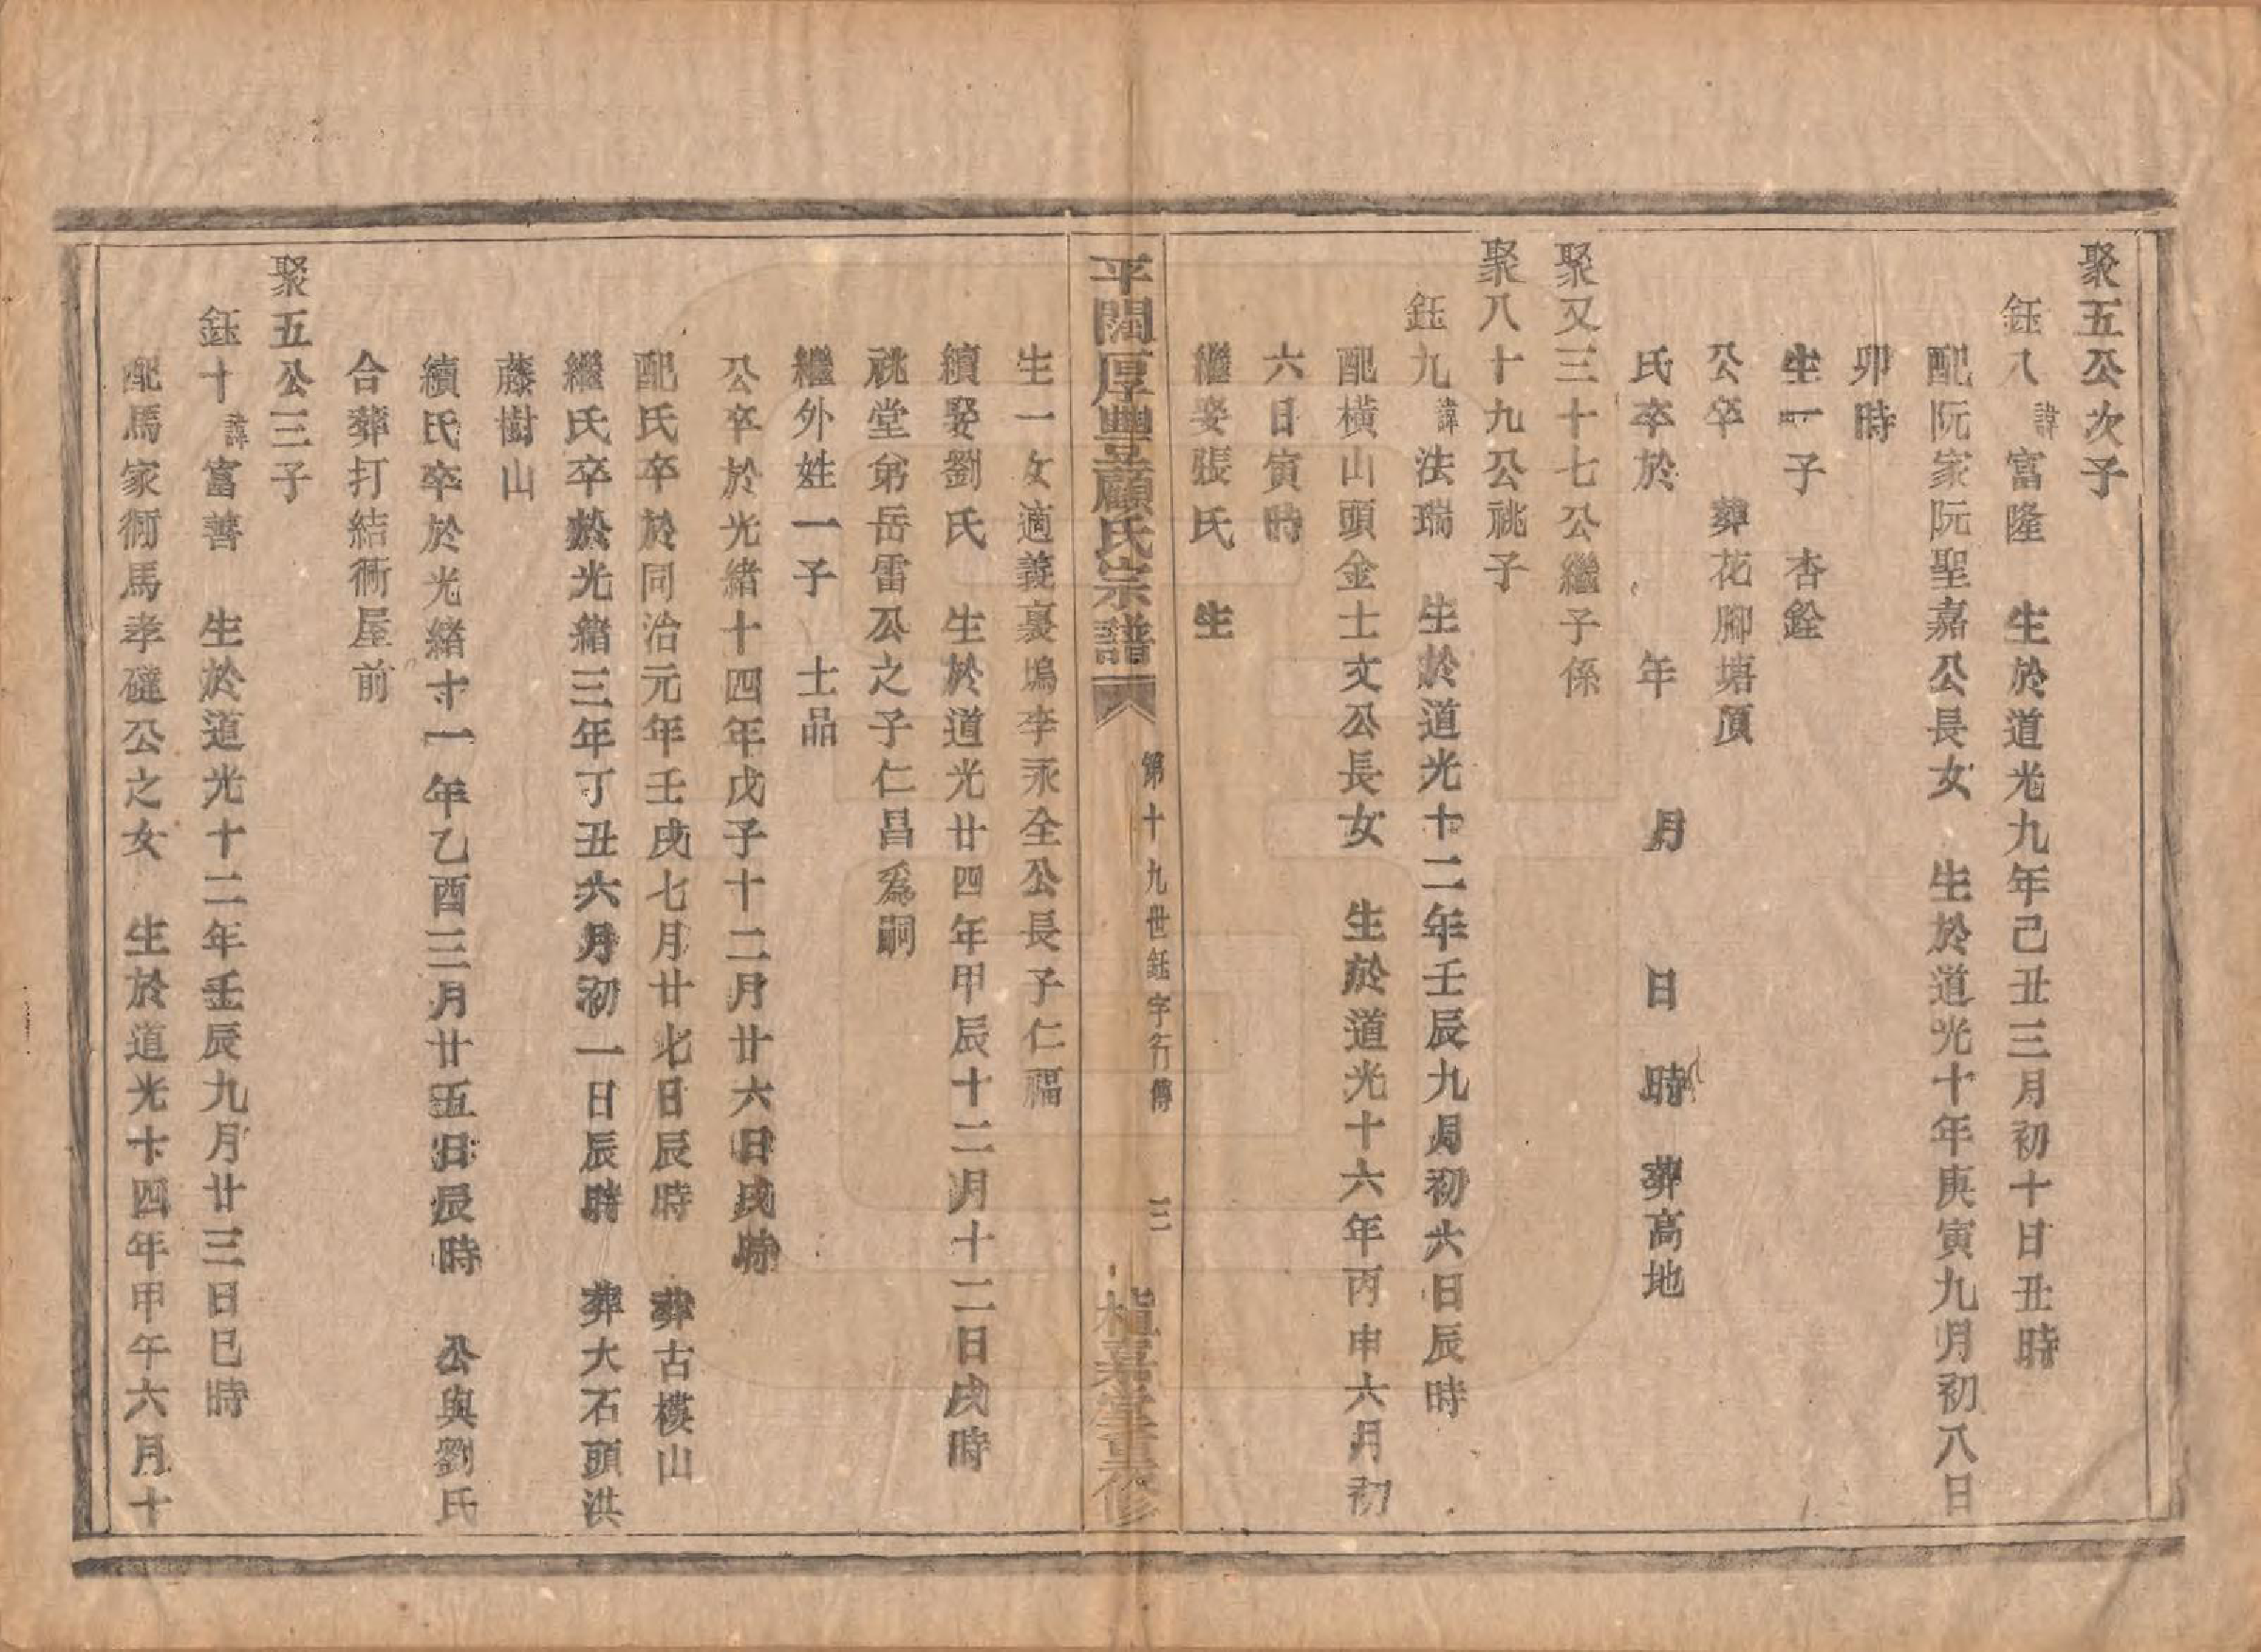 聚五公次子
鈺八諱富隆　生於道光九年己丑三月初十日丑時
配阮家阮聖嘉公長女　生於道光十年庚寅九月初八日
卯時
生一子　杏銓
公卒　葬花腳塘頂
氏卒於　年　月　日　時　葬高地
聚又三十七公繼子係
聚八十九公祧子
鈺九諱法瑞　生於道光十二年壬辰九月初六日辰時
配橫山頭金士文公長女　生於道光十六年丙申六月初
六日寅時
繼娶張氏　生
平闊厚豊顧氏宗譜　第十九世鈺字行傳　三　植嘉堂重修
生一女適義裏塢李永全公長子仁福
續娶劉氏　生於道光廿四年甲辰十二月十二日戌時
祧堂弟岳雷公之子仁昌爲嗣
繼外姓一子　士品
公卒於光緒十四年戊子十二月廿六日戌時
配氏卒於同治元年壬戌七月廿七日辰時　葬古樸山
繼氏卒於光緒三年丁丑六月初一日辰時　葬大石頭洪
藤樹山
續氏卒於光緒十一年乙酉三月廿五日辰時　公與劉氏
合葬打結衕屋前
聚五公三子
鈺十諱富善　生於道光十二年壬辰九月廿三日巳時
配馬家衕馬孝公之女　生於道光十四年甲午六月十